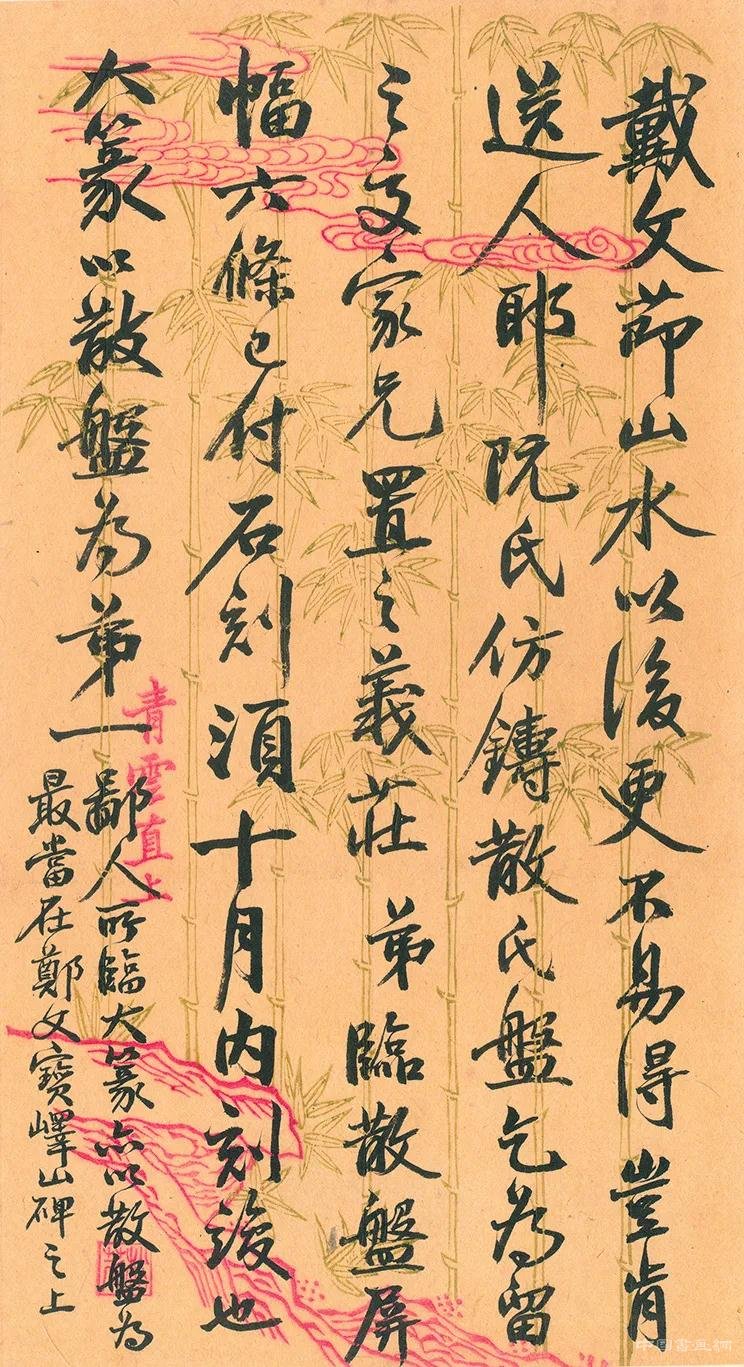 戴文節山水以後更不易得豈肯
送人耶阮氏仿鑄散氏盤乞為留
之交家兄置之義莊弟臨散盤屏
幅六條已付石刻須十月內刻竣也
大篆以散盤為第一鄙人所臨大篆亦以散盤為
最當在鄭文寶嶧山碑之上
青雲直上
中国书画网